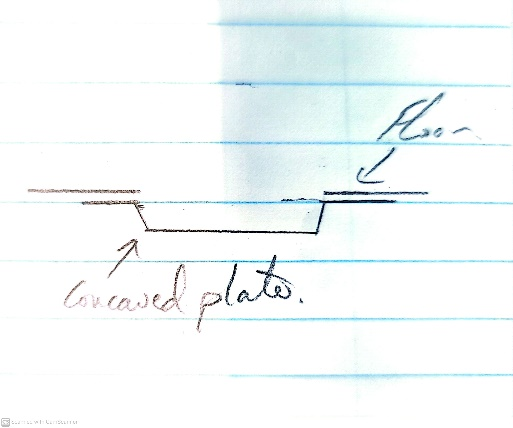 Floor
Concaved plate.
Scanned with CamScanner